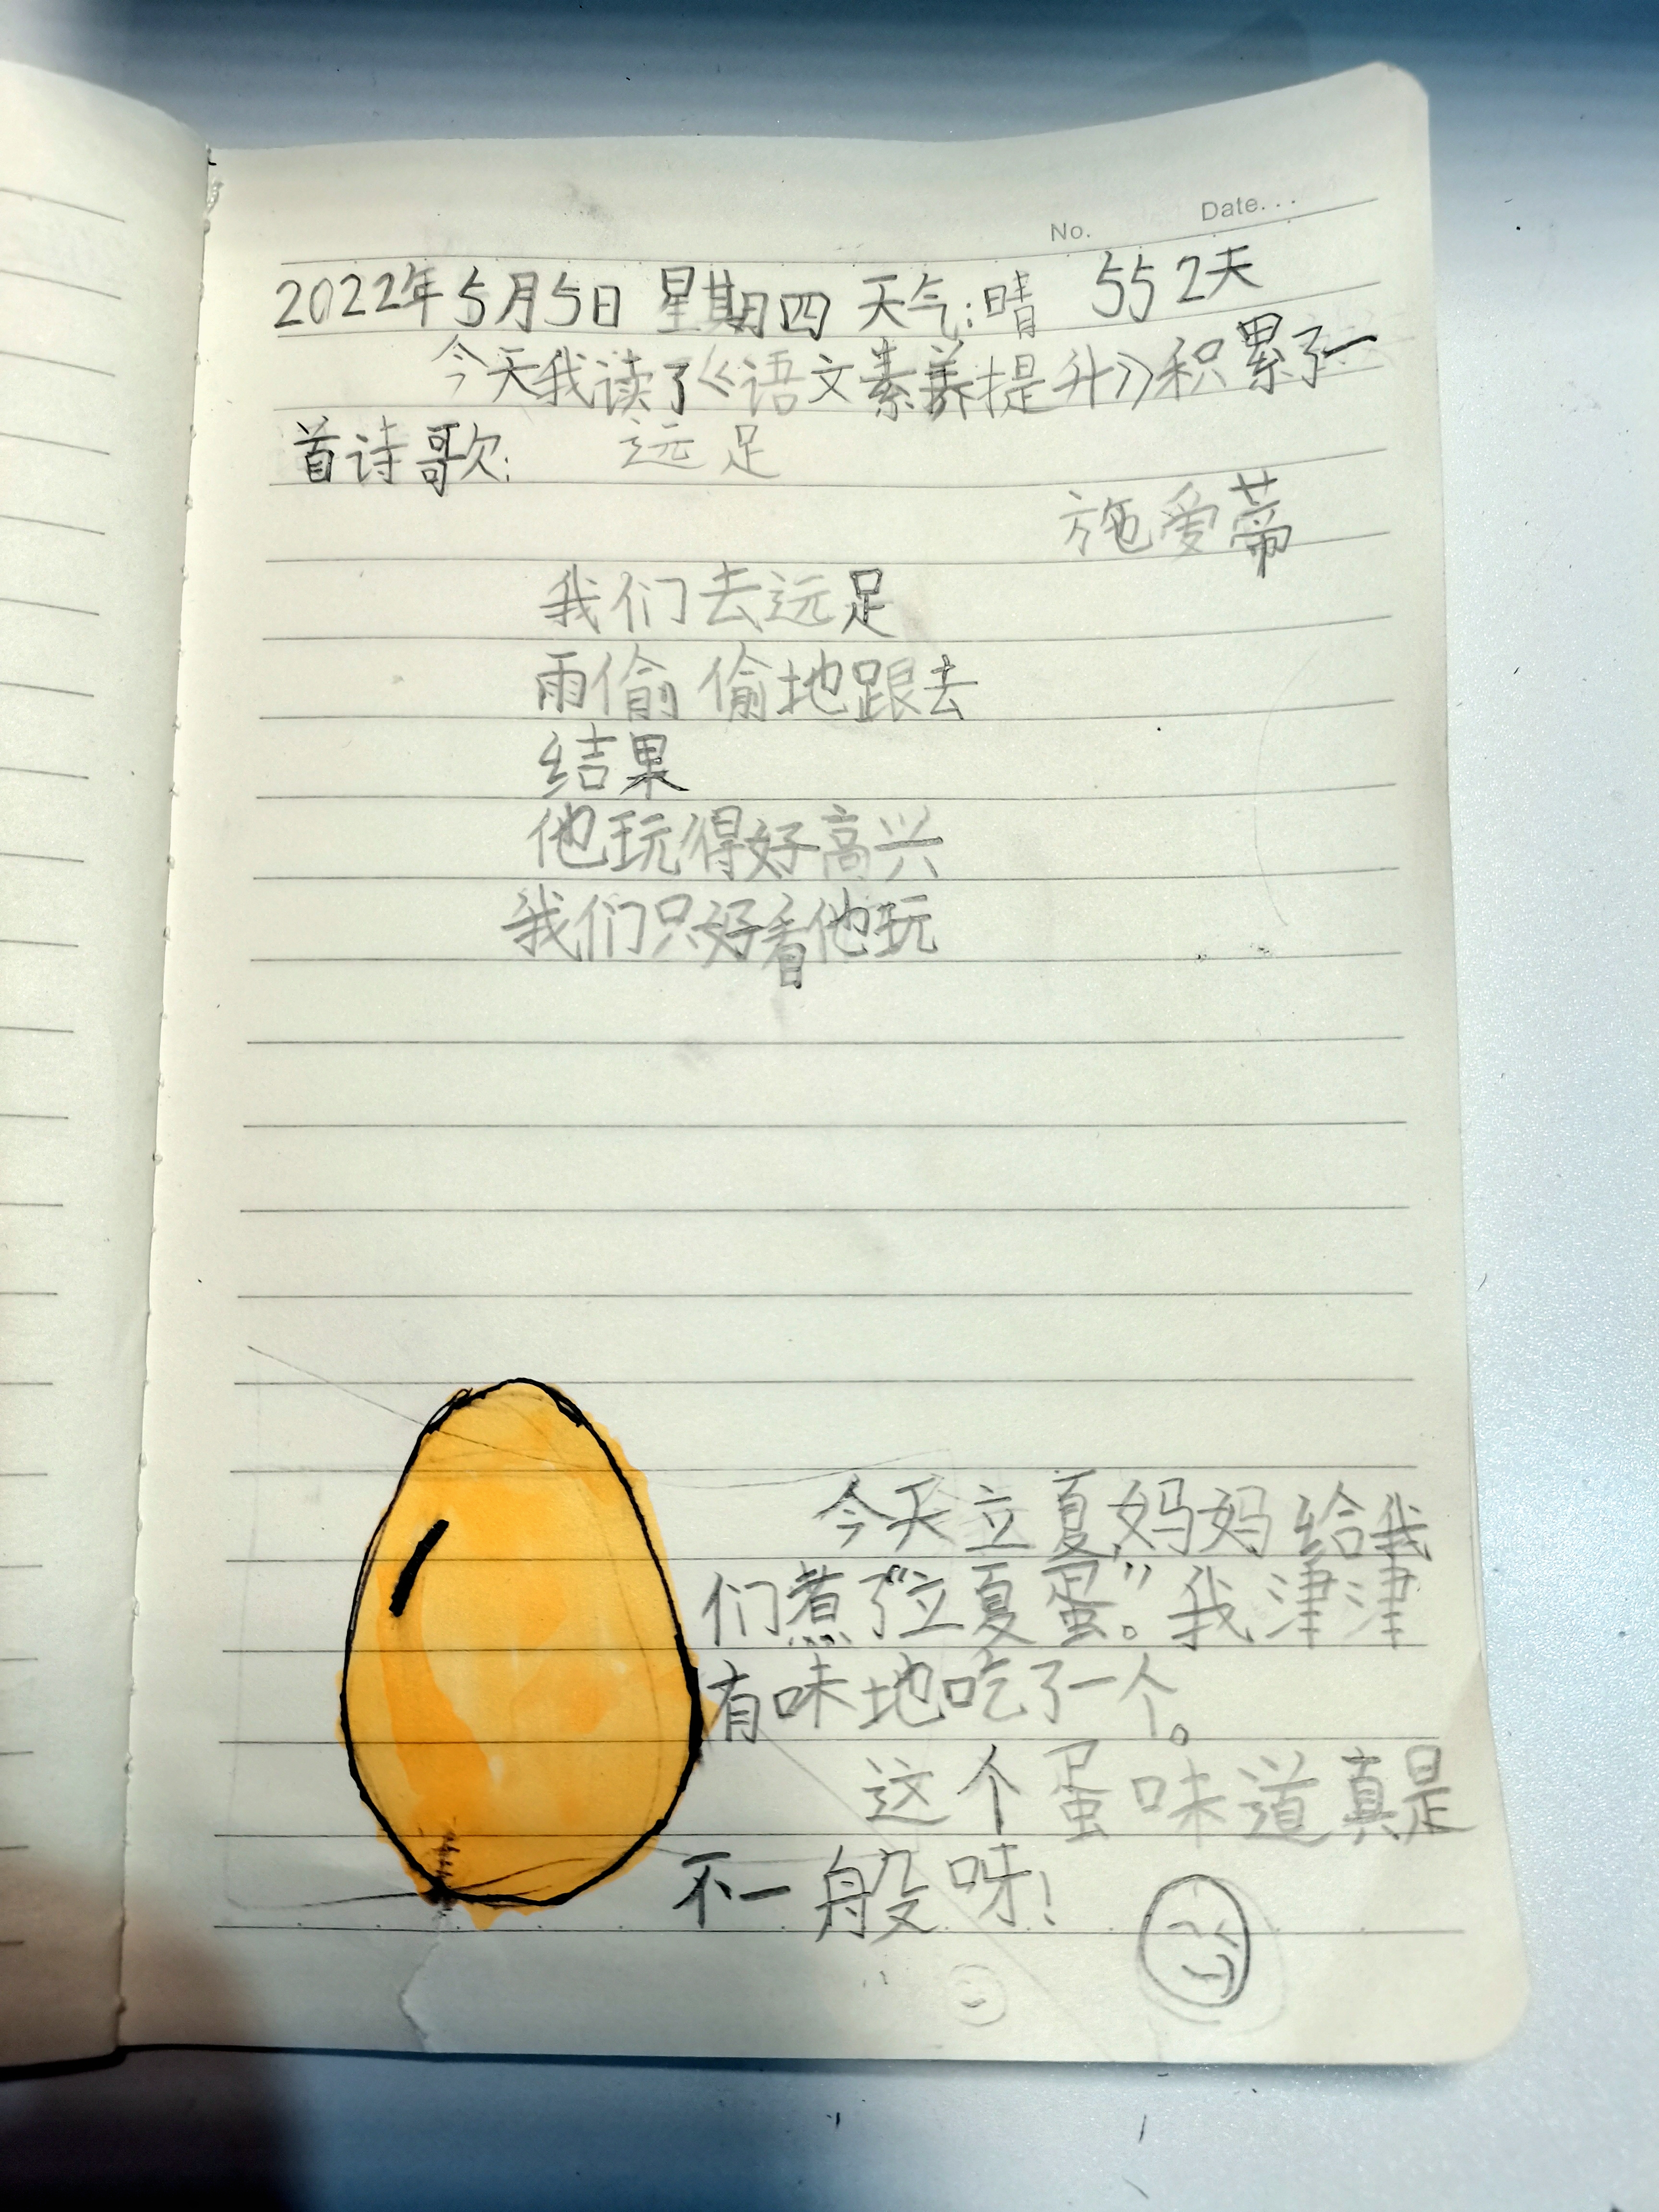 No.
Date...
2022年5月5日 星期四 天气:晴 552天
今天我读了《语文素养提升》积累了一
首诗歌: 远足
施爱蒂
我们去远足
雨偷偷地跟去
结果
他玩得好高兴
我们只好看他玩
今天立夏,妈妈给我
们煮了“立夏蛋”。我津津
有味地吃了一个。
这个蛋味道真是
不一般呀!